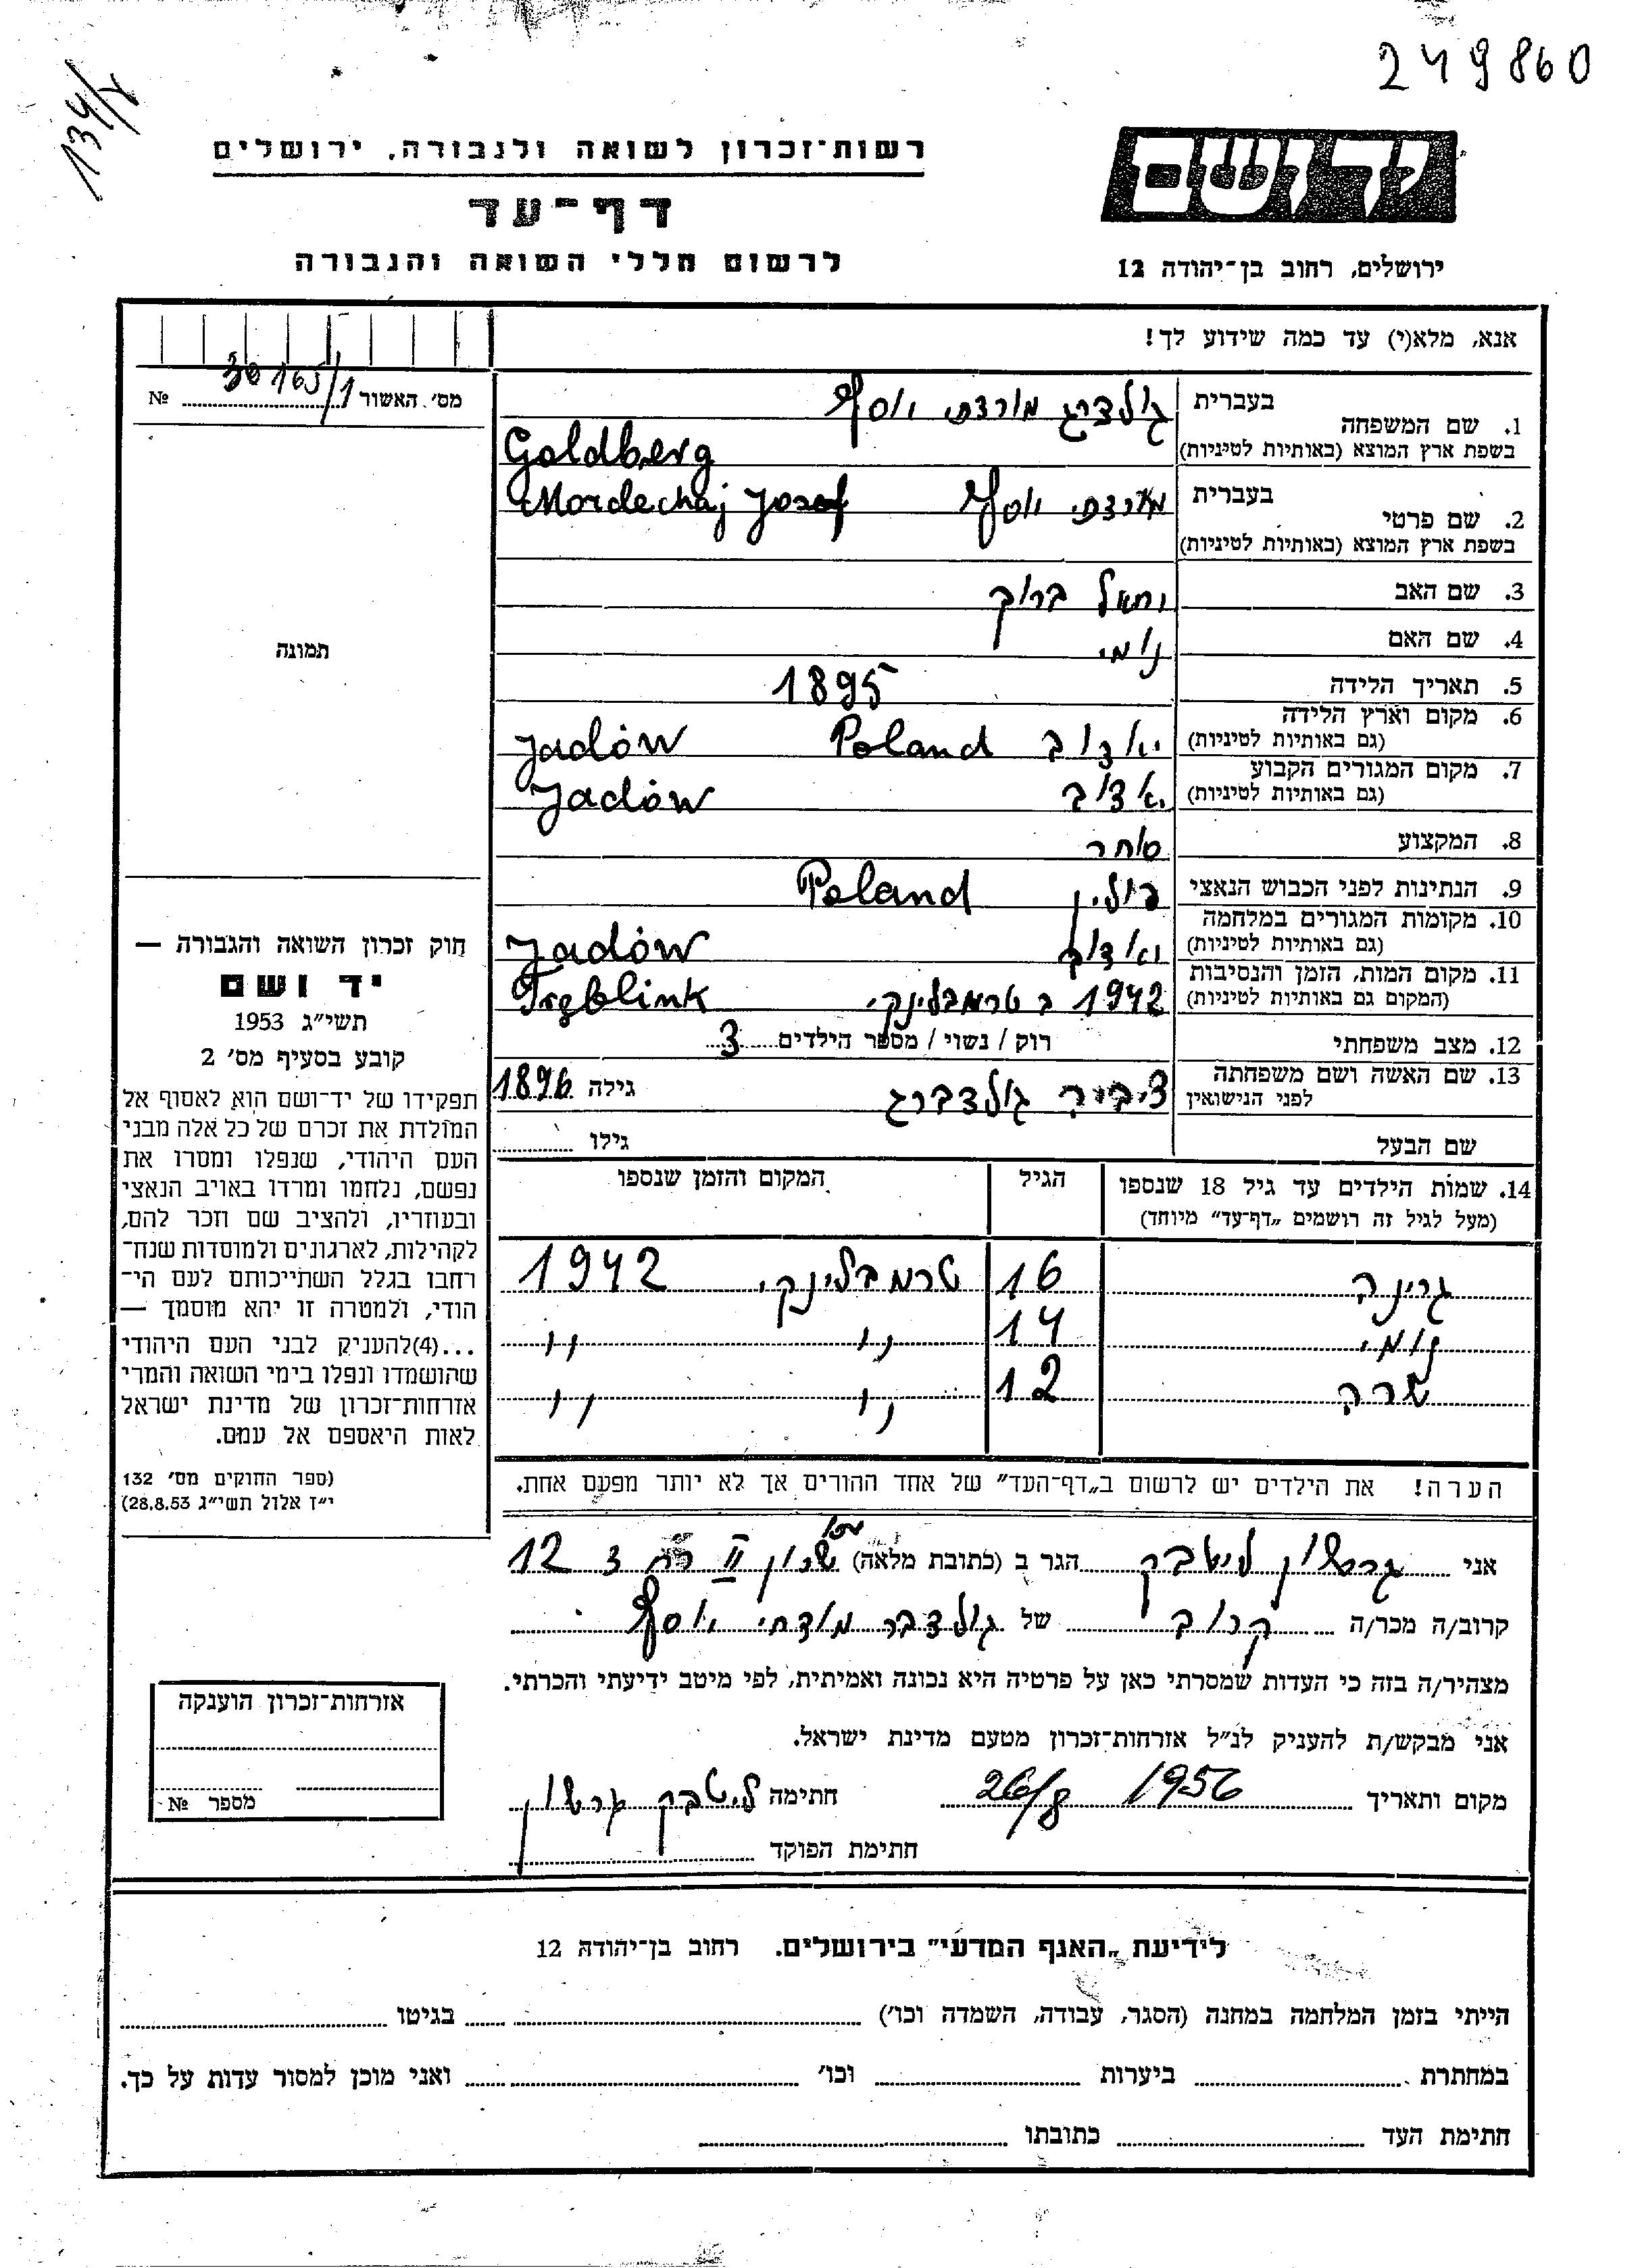 249860
134/ץ
רשות-זכרון לשואה ולגבורה, ירושלים
דף-עד
לרשום חללי השואה והגבורה
יד ושם
ירושלים, רחוב בן-יהודה 12
אנא, מלא(י) עד כמה שידוע לך!
מס׳ האשור 30165/1 №
תמונה
1. שם המשפחה בעברית גולדברג מורדכי יוסף
בשפת ארץ המוצא (באותיות לטיניות) Goldberg
2. שם פרטי בעברית מורדכי יוסף Mordechaj Josef
בשפת ארץ המוצא (באותיות לטיניות)
3. שם האב יחאל ברוך
4. שם האם נומי
5. תאריך הלידה 1895
6. מקום וארץ הלידה (גם באותיות לטיניות) יאדוב Poland Jadów
7. מקום המגורים הקבוע (גם באותיות לטיניות) יאדוב Jadów
8. המקצוע סוחר
9. הנתינות לפני הכבוש הנאצי פולין Poland
10. מקומות המגורים במלחמה (גם באותיות לטיניות) יאדוב Jadów
11. מקום המות, הזמן והנסיבות (המקום גם באותיות לטיניות) 1942 ב טרמבלינקי Tręblink
12. מצב משפחתי רוק / נשוי / מספר הילדים 3
13. שם האשה ושם משפחתה לפני הנישואין ציביה גולדברג גילה 1896
שם הבעל גילו
14. שמות הילדים עד גיל 18 שנספו הגיל המקום והזמן שנספו
(מעל לגיל זה רושמים „דף-עד" מיוחד)
גרינה 16 טרמבלינקי 1942
נומי 14 ,, ,,
שרה 12 ,, ,,
הערה! את הילדים יש לרשום ב„דף-העד" של אחד ההורים אך לא יותר מפעם אחת.
חוק זכרון השואה והגבורה —
יד ושם
תשי״ג 1953
קובע בסעיף מס׳ 2
תפקידו של יד-ושם הוא לאסוף אל
המולדת את זכרם של כל אלה מבני
העם היהודי, שנפלו ומסרו את
נפשם, נלחמו ומרדו באויב הנאצי
ובעוזריו, ולהציב שם וזכר להם,
לקהילות, לארגונים ולמוסדות שנח-
רבו בגלל השתייכותם לעם הי-
הודי, ולמטרה זו יהא מוסמך —
...(4)להעניק לבני העם היהודי
שהושמדו ונפלו בימי השואה והמרי
אזרחות-זכרון של מדינת ישראל
לאות היאספם אל עמם.
(ספר החוקים מס׳ 132
י״ז אלול תשי״ג 28.8.53)
אני גרשון ליטבק הגר ב (כתובת מלאה) שכון II רח 3 12
קרוב/ה מכר/ה קרוב של גולדבר מודחי יוסף
מצהיר/ה בזה כי העדות שמסרתי כאן על פרטיה היא נכונה ואמיתית, לפי מיטב ידיעתי והכרתי.
אני מבקש/ת להעניק לנ״ל אזרחות-זכרון מטעם מדינת ישראל.
מקום ותאריך 26/8 1956 חתימה ליטבק גרשון
חתימת הפוקד
אזרחות-זכרון הוענקה
מספר №
לידיעת „האגף המדעי" בירושלים. רחוב בן-יהודה 12
הייתי בזמן המלחמה במחנה (הסגר, עבודה, השמדה וכו׳) בגיטו
במחתרת ביערות וכו׳ ואני מוכן למסור עדות על כך.
חתימת העד כתובתו